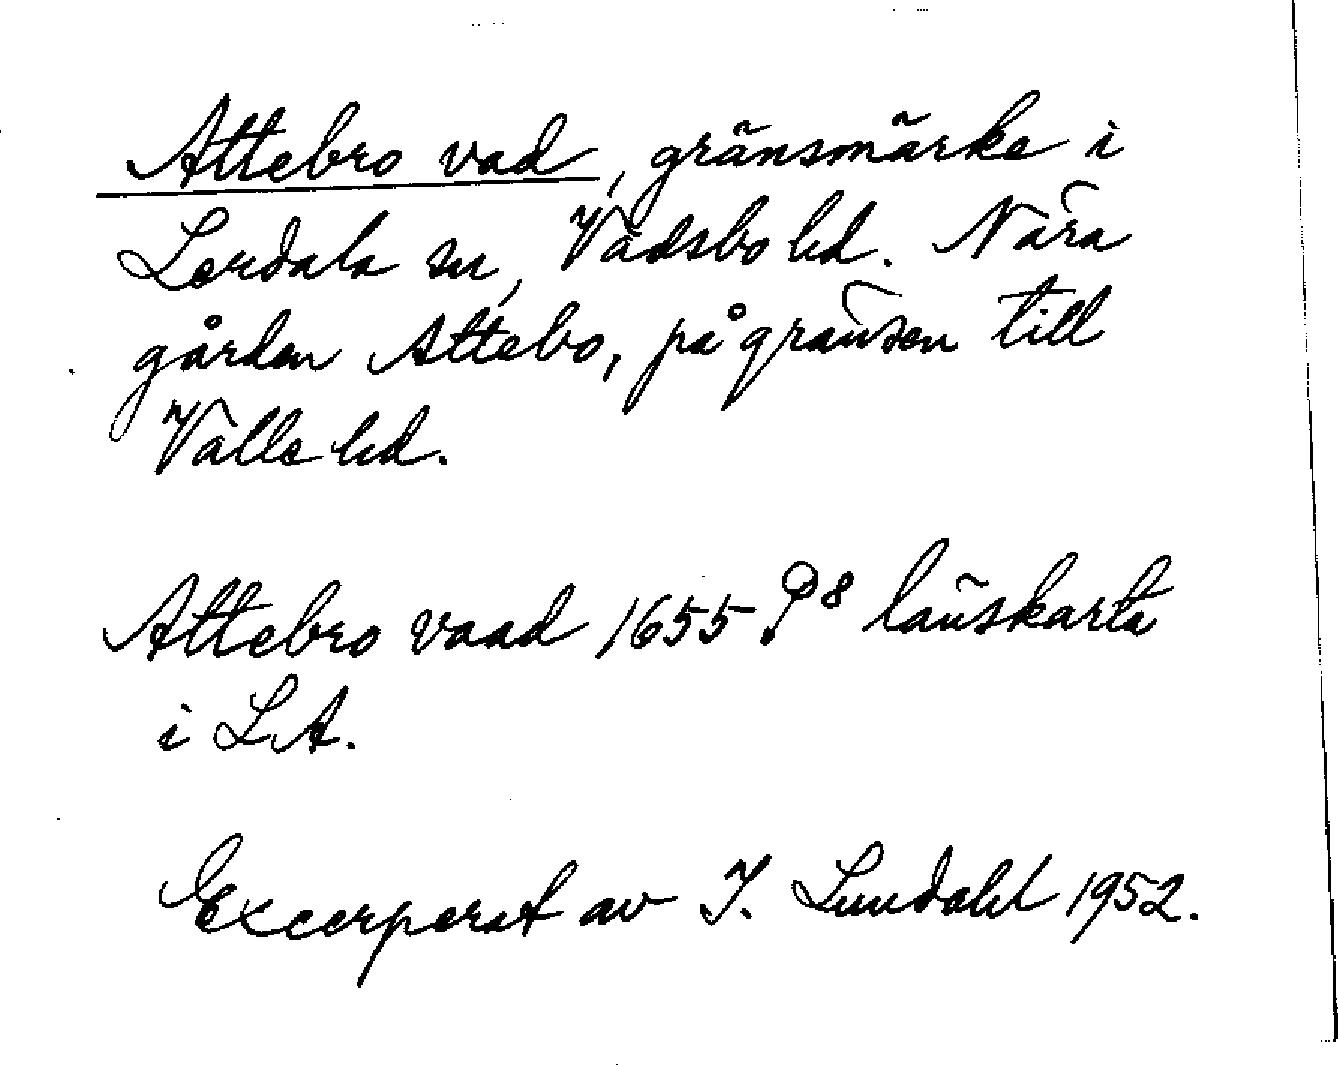 Attebro vad, gränsmärke i
Lerdala sn, Vadsbo hd. Nära
gården Attebo, på gränsen till
Valle hd.
Attebro vaad 1655 P8 länskarta
i L.A.
Excerperat av I. Lundahl 1952.